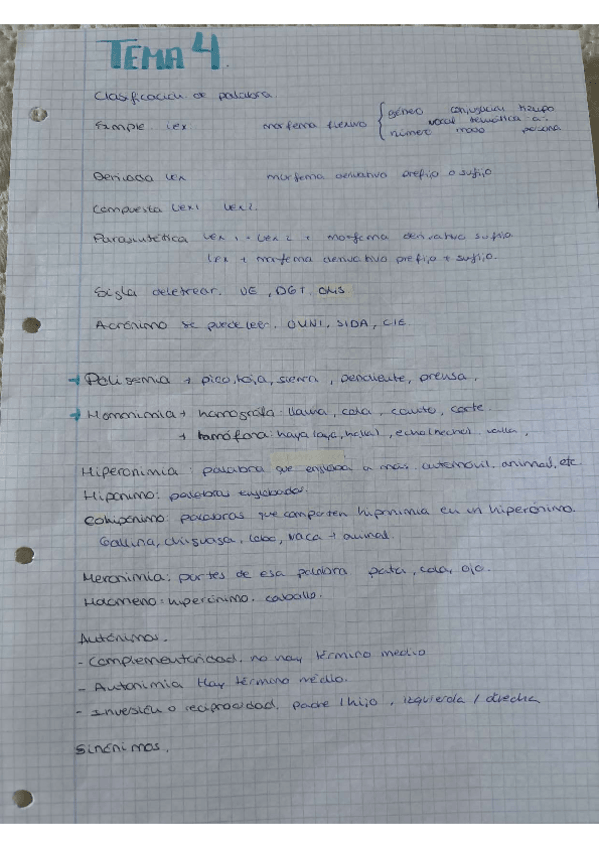 TEMA 4.
Clasificación de palabra.
Simple lex morfema flexivo { género conjugación tiempo
vocal temática a:
número modo persona
Derivada lex morfema derivativo prefijo o sufijo
Compuesta Lex1 Lex2.
Parasintética Lex 1 - Lex 2 + morfema derivativo sufijo
Lex + morfema derivativo prefijo + sufijo.
Sigla deletrear. UE, DGT, OMS
Acrónimo se puede leer. OUNI, SIDA, CIE
→ Polisemia → pico, hoja, sierra, pendiente, prensa,
→ Homonimia → homógrafa: llama, cola, canto, corte.
→ homófona: haya (aya, halla), echo (hecho) valla,
Hiperonimia: palabra que engloba a más. automóvil, animal, etc.
Hipónimo: palabras englobadas.
Cohipónimo: palabras que comparten hiponimia en un hiperónimo.
Gallina, , lobo, vaca → animal.
Meronimia: partes de esa palabra pata, cola, ojo.
Holómeno: hiperónimo. caballo.
Antónimos.
- Complementariedad. no hay término medio
- Antonimia Hay término medio.
- Inversión o reciprocidad. padre / hijo, izquierda / derecha
Sinónimos.